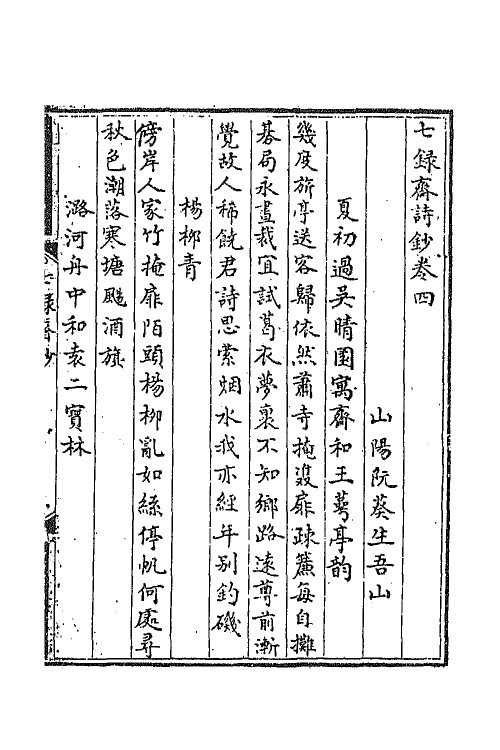 七録齋詩鈔卷四
山陽阮葵生吾山
夏初過吳晴園寓齋和王蕚亭韵
幾度旅亭送客歸依然蕭寺掩雙扉疎簾每自攤
棊局永晝裁宜試葛衣夢裏不知鄉路遠尊前漸
覺故人稀饒君詩思縈烟水我亦經年别釣磯
楊柳青
傍岸人家竹掩扉陌頭楊柳亂如絲停帆何處尋
秋色潮落寒塘颺酒旗
潞河舟中和袁二寶林